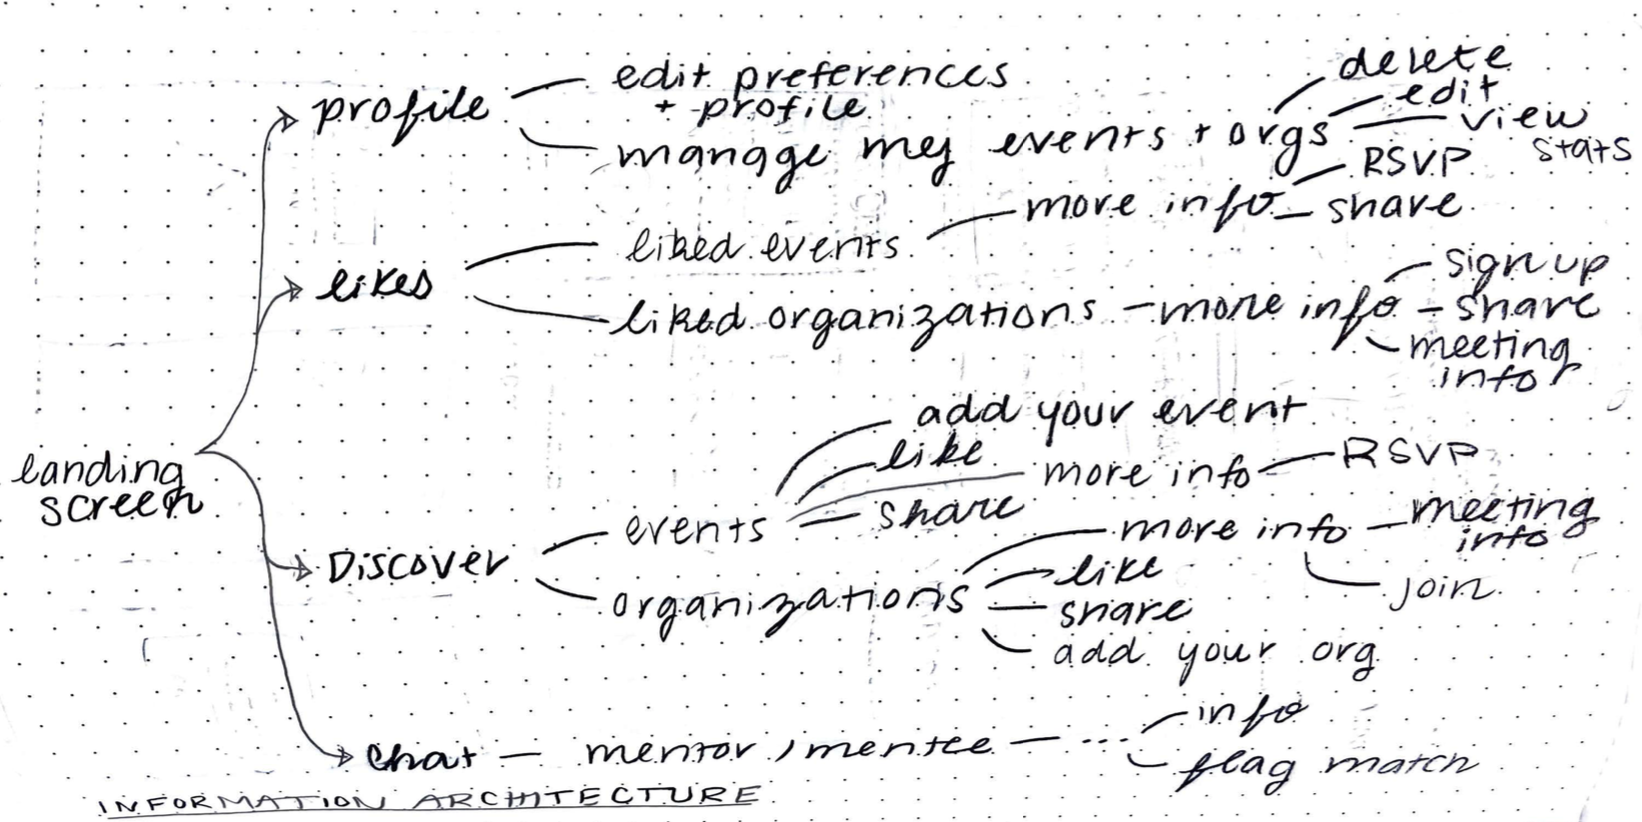 landing
screen
profile
edit preferences
+ profile
manage my events + orgs
delete
edit
view
stats
likes
liked events
more info
RSVP
share
liked organizations
more info
sign up
share
meeting
info
Discover
events
add your event
like
more info
RSVP
share
organizations
more info
meeting
info
join
like
share
add your org
chat
mentor / mentee
...
info
flag match
INFORMATION ARCHITECTURE